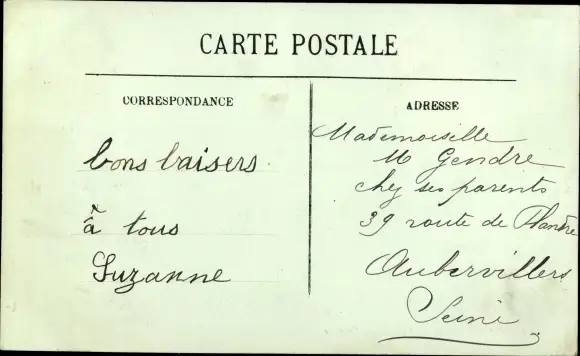 CARTE POSTALE
CORRESPONDANCE
bons baisers
à tous
Suzanne
ADRESSE
Mademoiselle
M Gendre
chez ses parents
39 route de Flandre
Aubervilliers
Seine